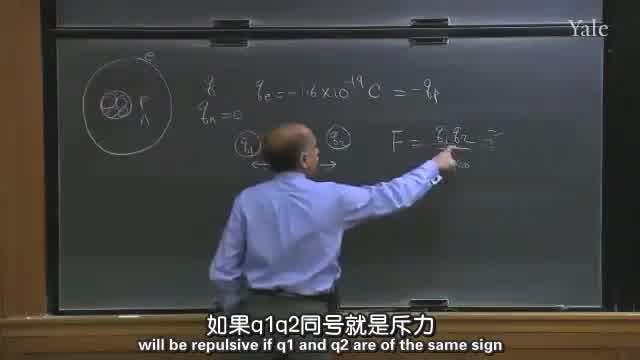 Yale
e
P
n
q
qₑ = -1.6 x 10⁻¹⁹ C = -qₚ
qₙ = 0
q₁ q₂
F = q₁q₂
如果q1q2同号就是斥力
will be repulsive if q1 and q2 are of the same sign